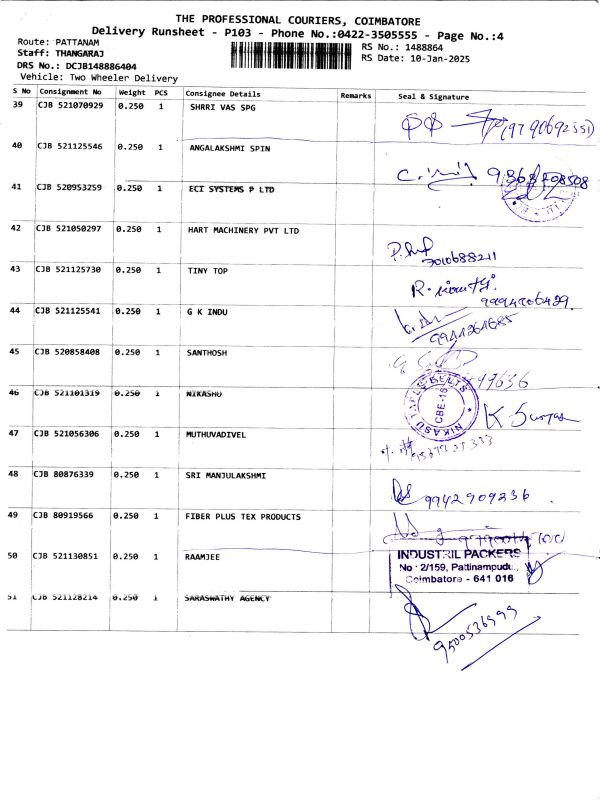 THE PROFESSIONAL COURIERS, COIMBATORE
Delivery Runsheet - P103 - Phone No.:0422-3505555 - Page No.:4
Route: PATTANAM
Staff: THANGARAJ
DRS No.: DCJB148886404
Vehicle: Two Wheeler Delivery
RS No.: 1488864
RS Date: 10-Jan-2025
S No Consignment No Weight PCS Consignee Details Remarks Seal & Signature
39 CJB 521070929 0.250 1 SHRRI VAS SPG
(9790692551)
40 CJB 521125546 0.250 1 ANGALAKSHMI SPIN
41 CJB 520953259 0.250 1 ECI SYSTEMS P LTD
42 CJB 521050297 0.250 1 HART MACHINERY PVT LTD
7010688211
43 CJB 521125730 0.250 1 TINY TOP
44 CJB 521125541 0.250 1 G K INDU
45 CJB 520858408 0.250 1 SANTHOSH
46 CJB 521101319 0.250 1 NIKASHU
NIKASU TAPES BELTS
CBE-16
47 CJB 521056306 0.250 1 MUTHUVADIVEL
48 CJB 80876339 0.250 1 SRI MANJULAKSHMI
9942909236
49 CJB 80919566 0.250 1 FIBER PLUS TEX PRODUCTS
50 CJB 521130851 0.250 1 RAAMJEE
INDUSTRIL PACKERS
No : 2/159, Pattinampudu.,
Coimbatore - 641 016
51 CJB 521128214 0.250 1 SARASWATHY AGENCY
9500536999